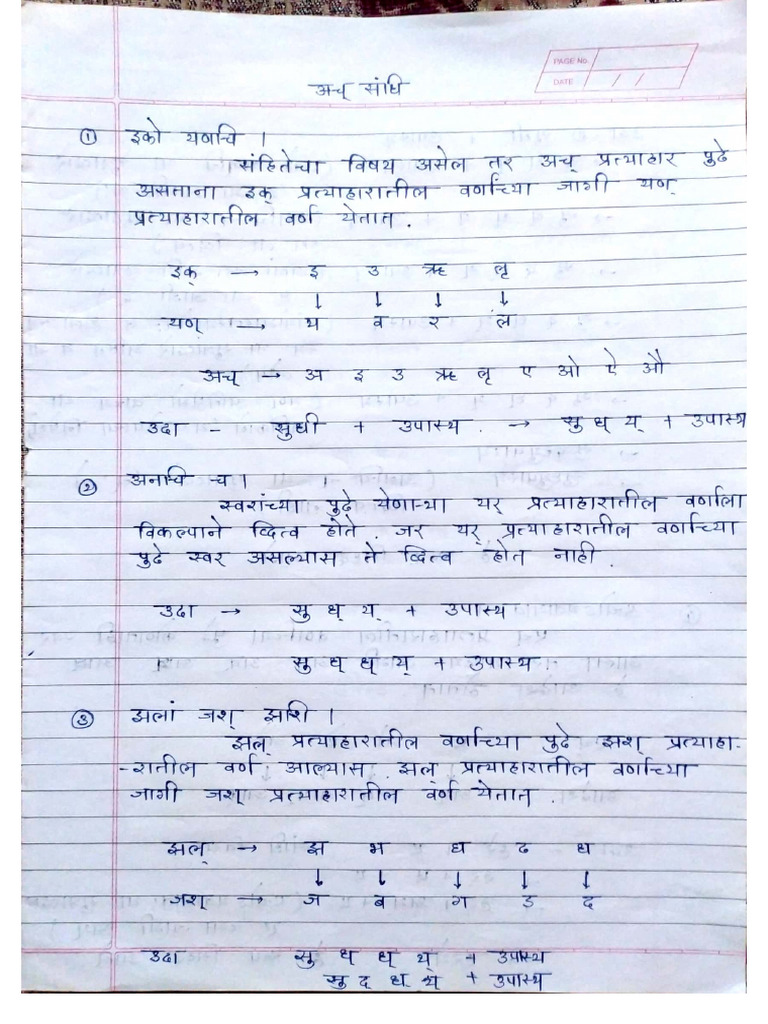 PAGE No.
DATE / /
अच् संधि
① इको यणचि ।
संहितेचा विषय असेल तर अच् प्रत्याहार पुढे
असताना इक् प्रत्याहारातील वर्णांच्या जागी यण्
प्रत्याहारातील वर्ण येतात .
इक् → इ उ ऋ लृ
↓ ↓ ↓ ↓
यण् → य व र ल
अच् → अ इ उ ऋ लृ ए ओ ऐ औ
उदा - सुधी + उपास्य . → सु ध् य् + उपास्य
② अनचि च ।
स्वरांच्या पुढे येणाऱ्या यर् प्रत्याहारातील वर्णाला
विकल्पाने द्वित्व होते . जर यर् प्रत्याहारातील वर्णाच्या
पुढे स्वर असल्यास ते द्वित्व होत नाही .
उदा → सु ध् य् + उपास्य
सु ध् ध् य् + उपास्य
③ झलां जश् झशि ।
झल् प्रत्याहारातील वर्णाच्या पुढे झश् प्रत्याहा-
-रातील वर्ण आल्यास झल् प्रत्याहारातील वर्णाच्या
जागी जश् प्रत्याहारातील वर्ण येतात .
झल् → झ भ घ ढ ध
↓ ↓ ↓ ↓ ↓
जश् → ज ब ग ड द
उदा सु ध् ध् य् + उपास्य
सु द् ध् य् + उपास्य